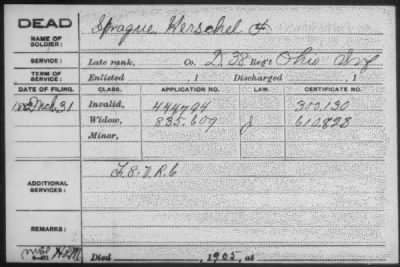 DEAD
NAME OF SOLDIER: Sprague Herschel F
SERVICE: Late rank, Co. D, 38 Reg't Ohio Inf
TERM OF SERVICE: Enlisted , 1 Discharged , 1
DATE OF FILING. CLASS. APPLICATION NO. LAW. CERTIFICATE NO.
Mch 31 Invalid, 444794 300.130
Widow, 835.609 J 610.828
Minor,
ADDITIONAL SERVICES: F. 8. V. R. C
REMARKS:
Died , 1905, at